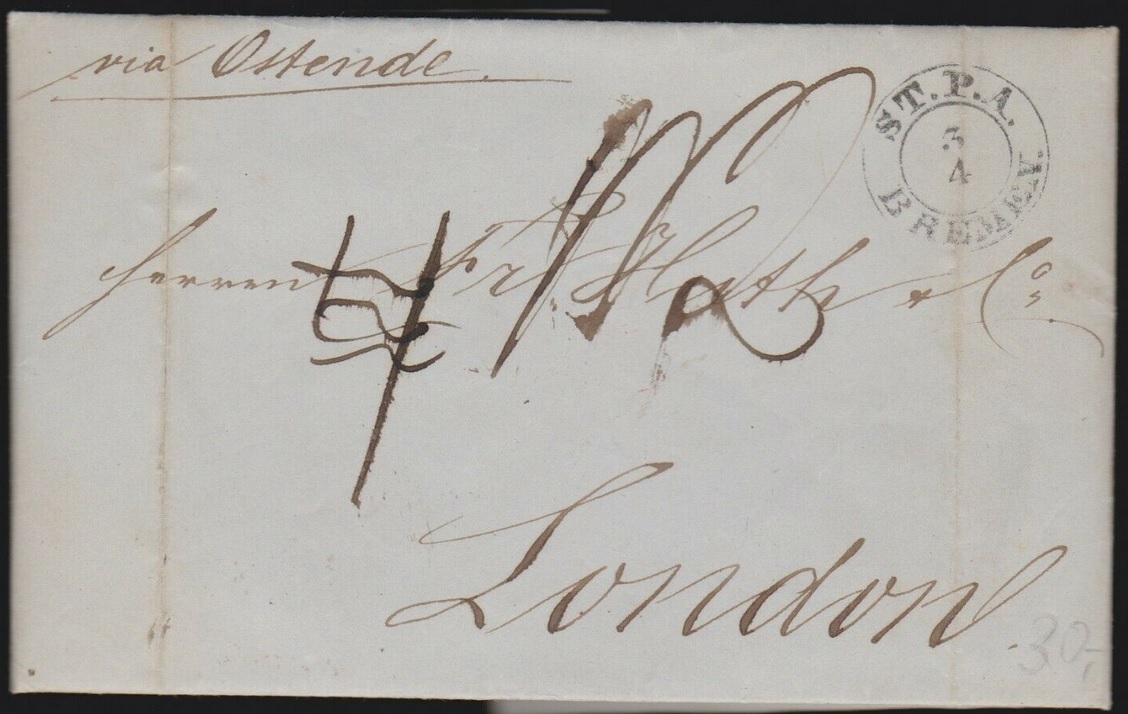 via Ostende
ST. P. A.
3
4
BREMEN
Herren Fr Huth & Co
London
30,-